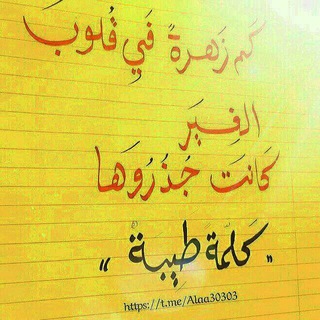 كم زهرةً في قُلوب
الغِيَر
كَانَت جُذُرُوهَا
"كَلِمَة طيبة"
https://t.me/Alaa30303